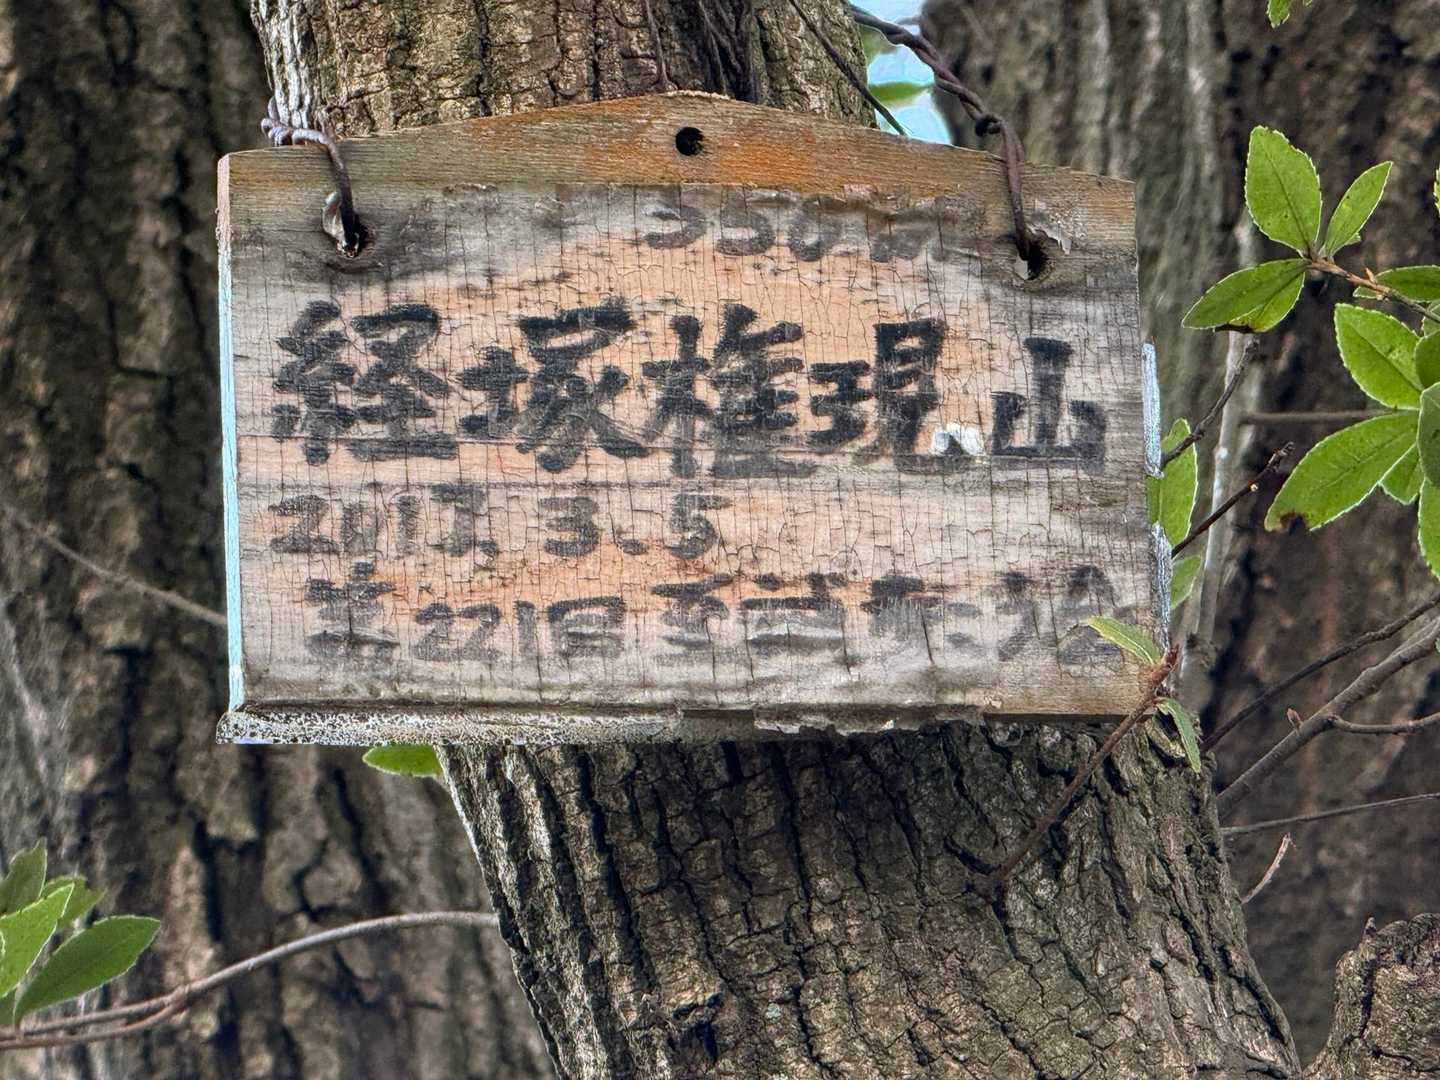 550m
経塚権現山
2017.3.5
第221回